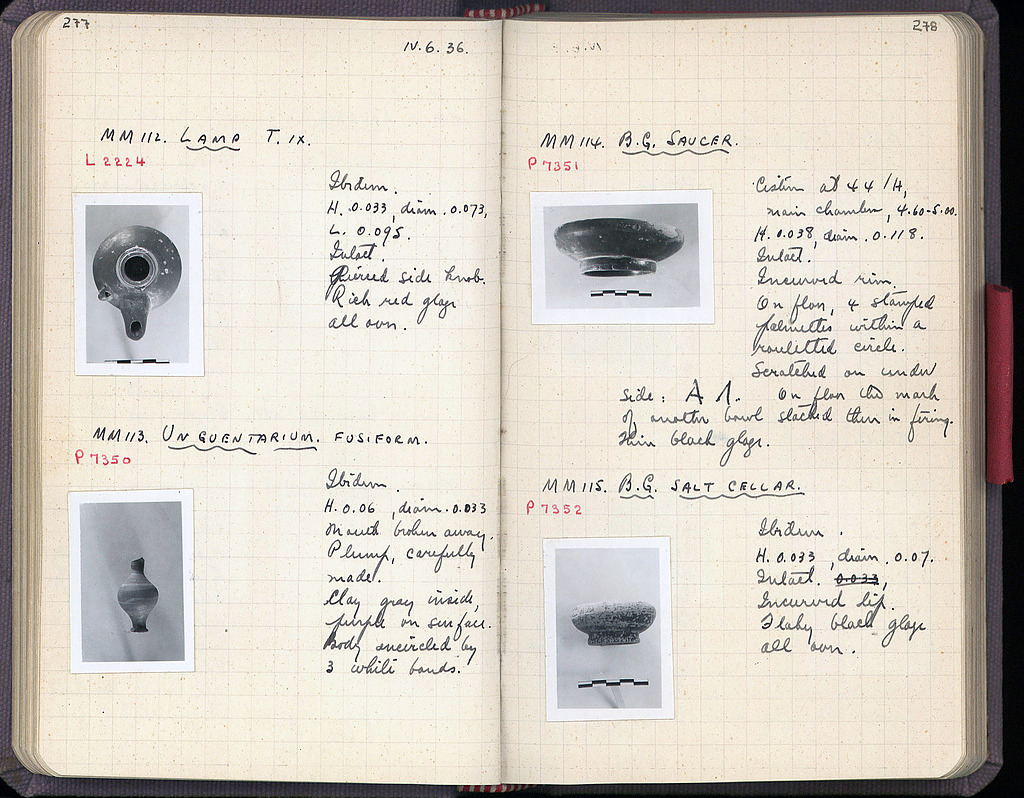 277
IV. 6. 36.
MM 112. LAMP T. IX.
L 2224
Ibidem.
H. 0.033, diam. 0.073,
L. 0.095.
Intact.
Pierced side knob.
Rich red glaze
all over.
MM 113. UNGUENTARIUM. FUSIFORM.
P 7350
Ibidem.
H. 0.06, diam. 0.033
Mouth broken away.
Plump, carefully
made.
Clay gray inside,
purple on surface.
Body encircled by
3 white bands.
278
MM 114. B.G. SAUCER.
P 7351
Cistern at 44/Η,
main chamber, 4.60-5.00.
H. 0.038, diam. 0.118.
Intact.
Incurved rim.
On floor, 4 stamped
palmettes within a
rouletted circle.
Scratched on under
side: Α Λ. On floor the mark
of another bowl stacked then in firing.
Thin black glaze.
MM 115. B.G. SALT CELLAR.
P 7352
Ibidem.
H. 0.033, diam. 0.07.
Intact. 0.033,
Incurved lip.
Flaky black glaze
all over.